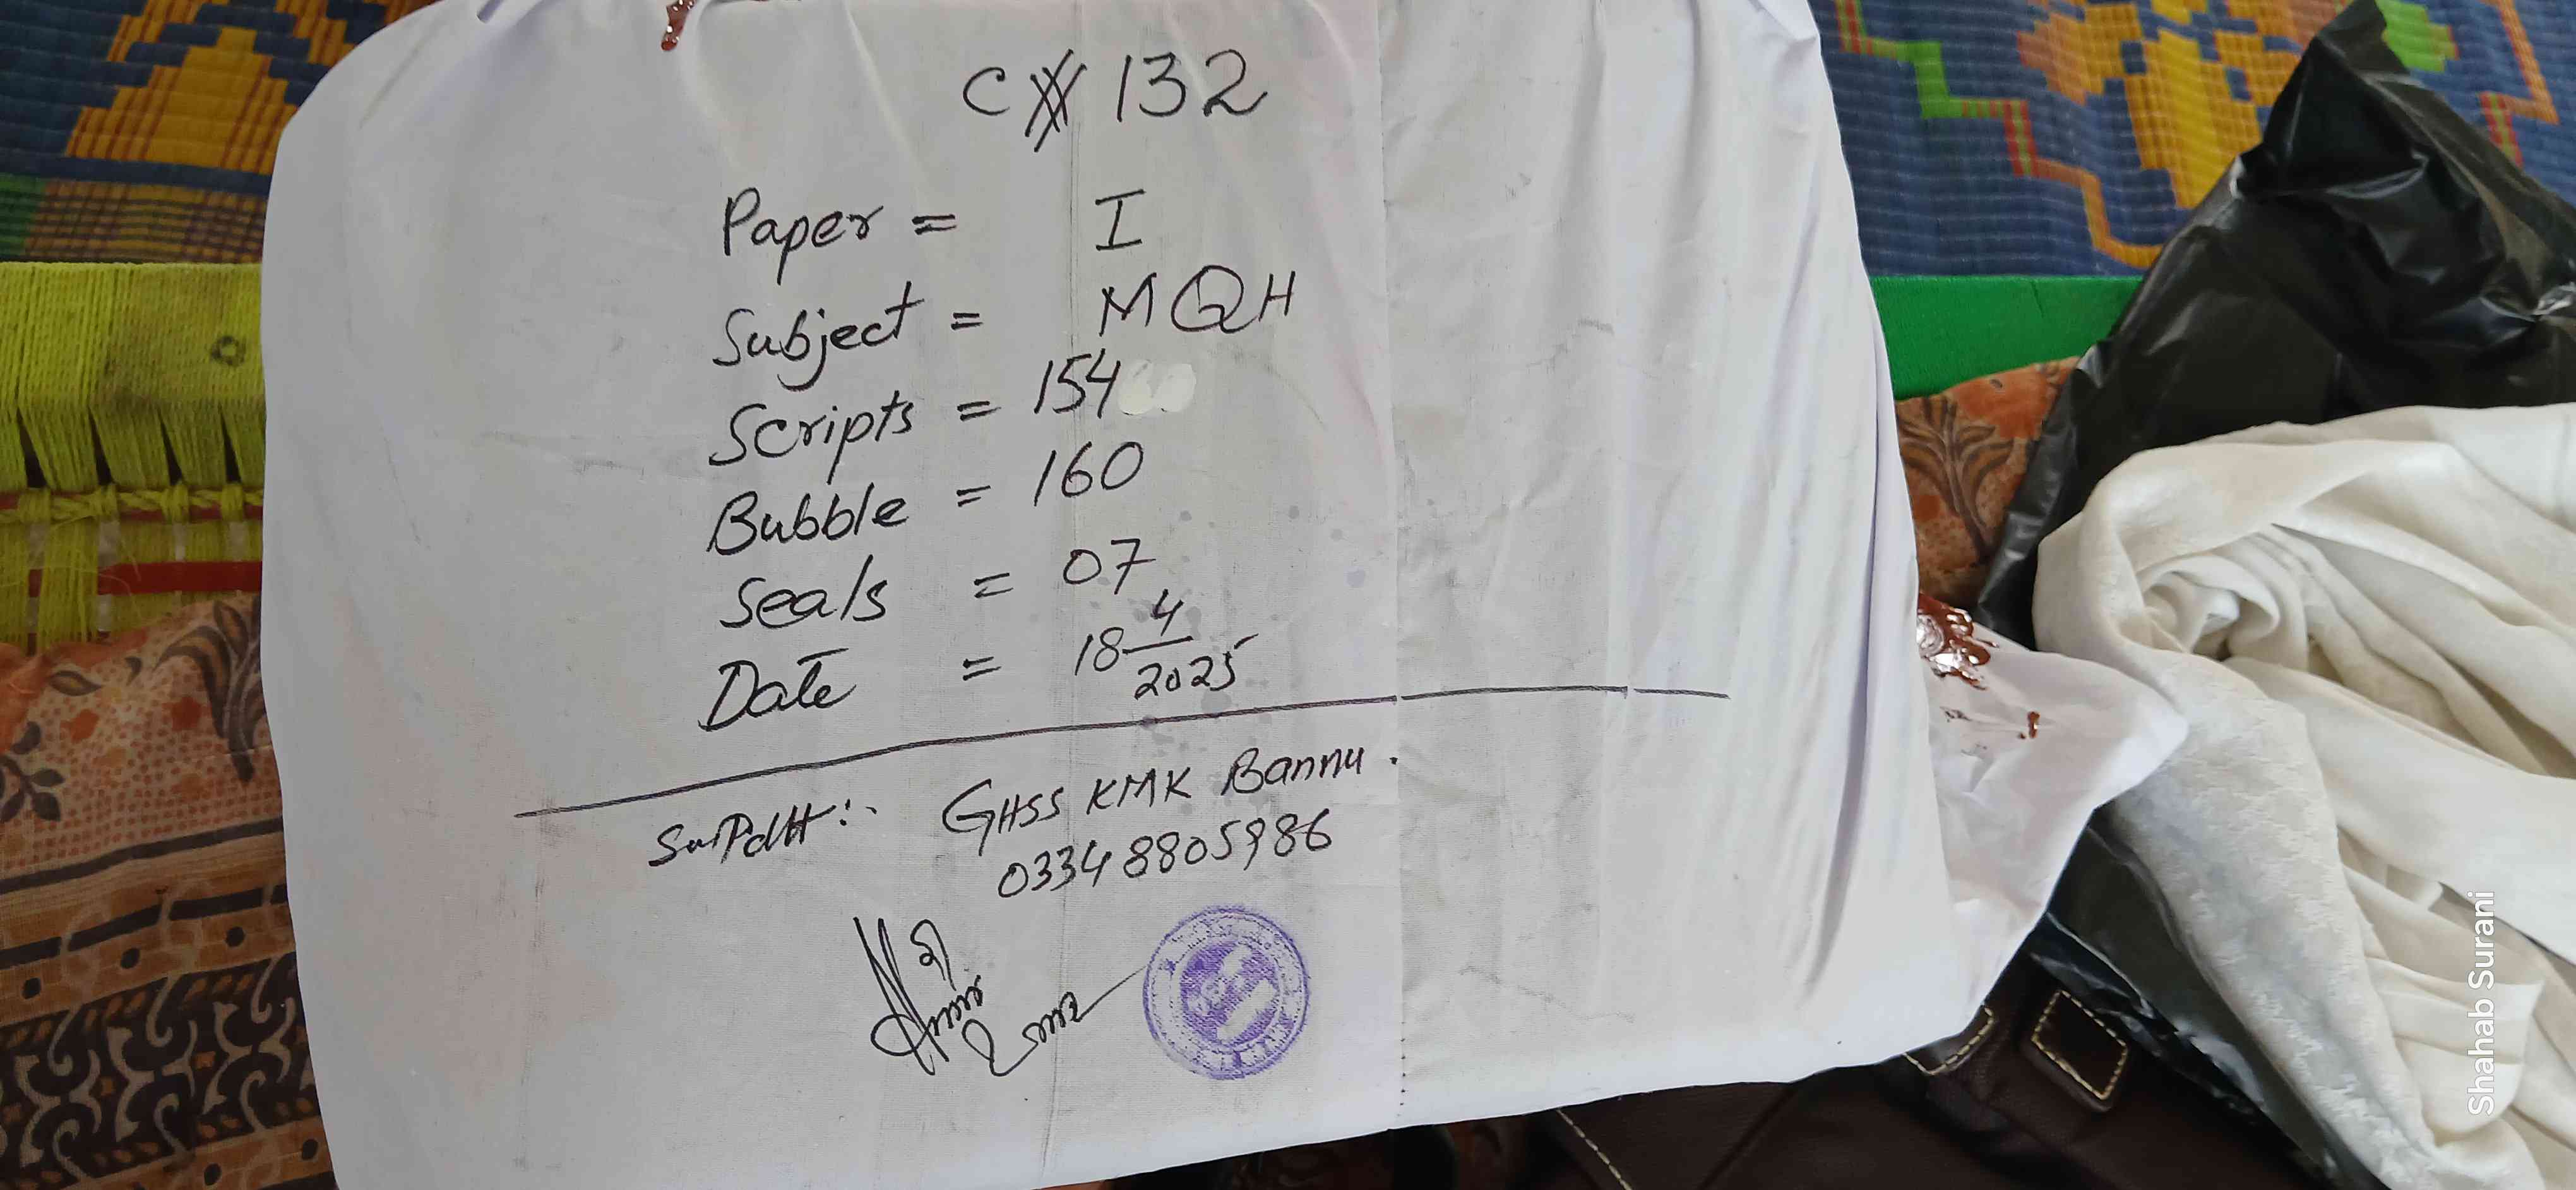 C # 132
Paper = I
Subject = MQH
Scripts = 154
Bubble = 160
Seals = 07
Date = 18 4/2025
Supdtt:- GHSS KMK Bannu.
0334 8805986
Shahab Surani